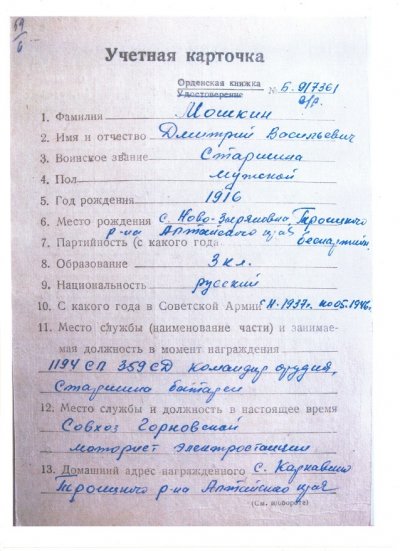 59
6
Учетная карточка
Орденская книжка
Удостоверение № Б-917361
1. Фамилия Мошкин
2. Имя и отчество Дмитрий Васильевич
3. Воинское звание Старшина
4. Пол мужской
5. Год рождения 1916
6. Место рождения с. Ново-Зыряновка, Троицкого
р-на Алтайского края
7. Партийность (с какого года беспартийн.
8. Образование 3 кл.
9. Национальность русский
10. С какого года в Советской Армии с 11-1937г. по 05.1946г.
11. Место службы (наименование части) и занимае-
мая должность в момент награждения
1194 СП 359 СД командир орудия,
Старшина батареи
12. Место службы и должность в настоящее время
Совхоз Горновской
моторист электростанции
13. Домашний адрес награжденного с.
Троицкого р-на Алтайского края
(См. на обороте)